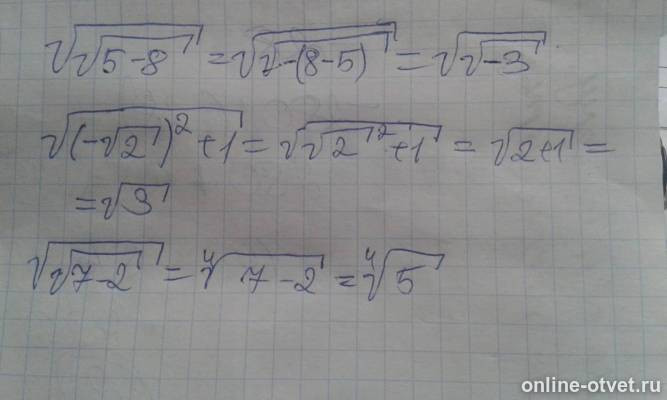 √√5-8 = √√-(8-5) = √√-3
√(-√2)²+1 = √√2²+1 = √2+1 =
= √3
√√7-2 = ⁴√7-2 = ⁴√5
online-otvet.ru